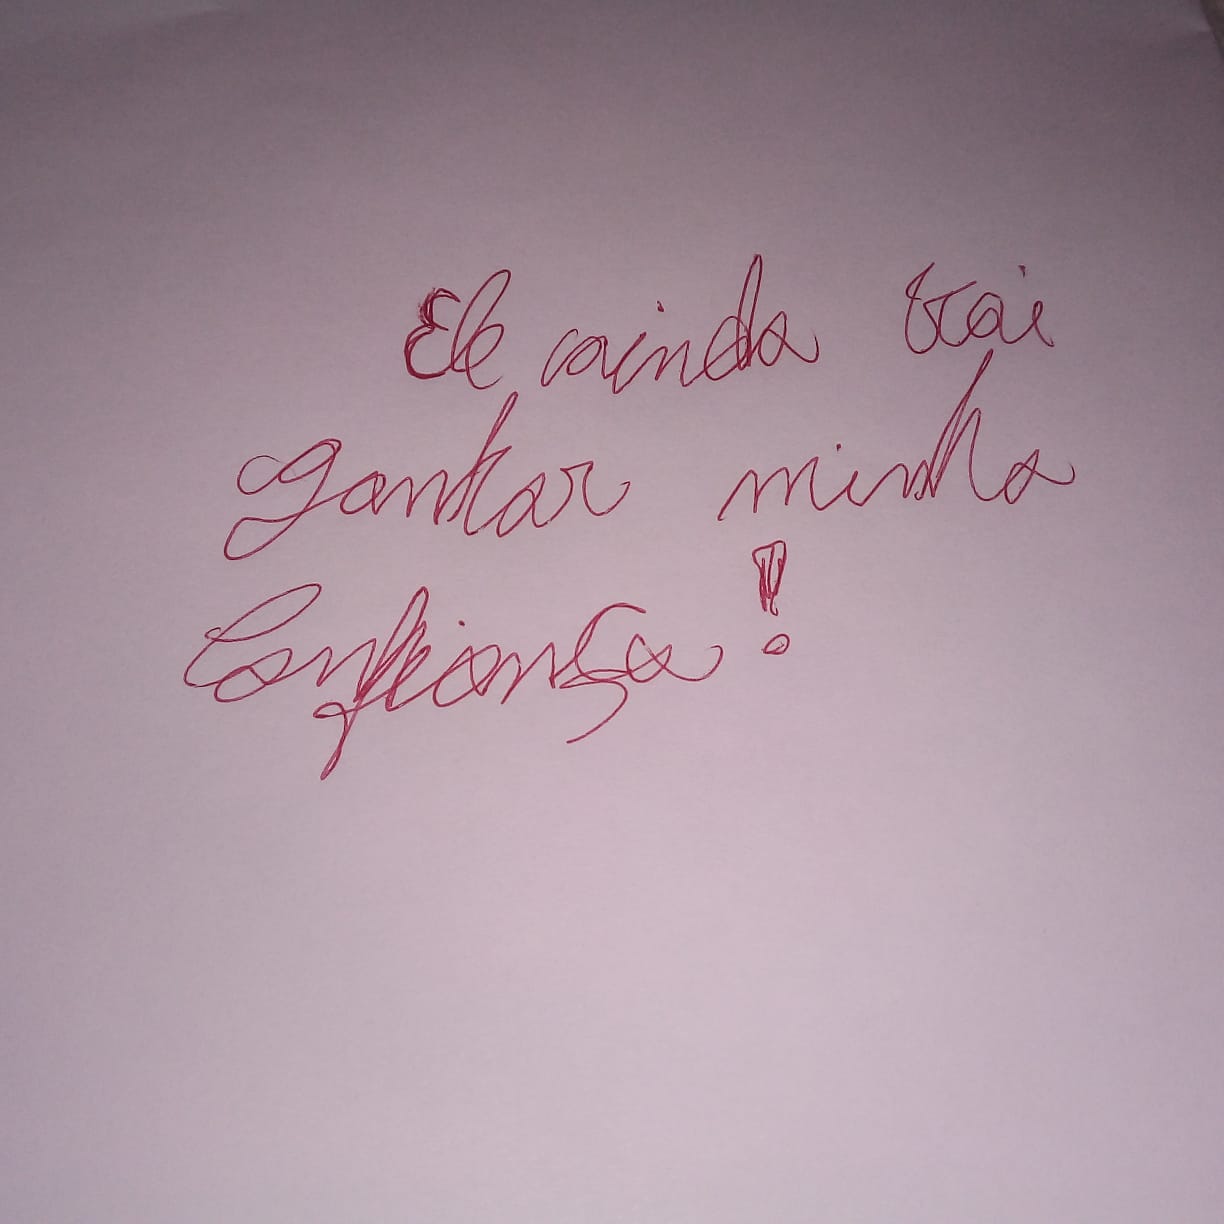 Ele ainda vai
ganhar minha
Confiança!